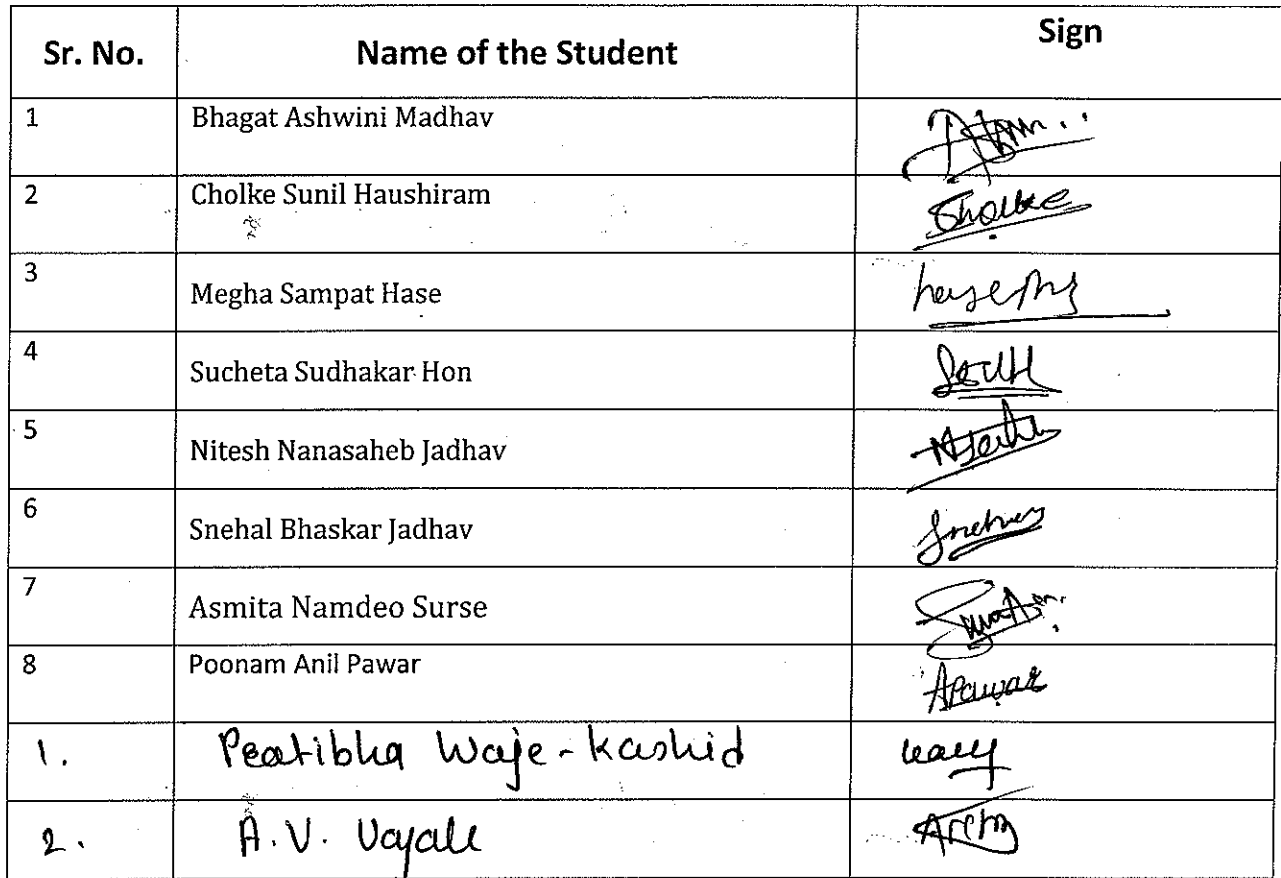 Sr. No. Name of the Student Sign
1 Bhagat Ashwini Madhav
2 Cholke Sunil Haushiram Cholke
3 Megha Sampat Hase
4 Sucheta Sudhakar Hon
5 Nitesh Nanasaheb Jadhav
6 Snehal Bhaskar Jadhav
7 Asmita Namdeo Surse
8 Poonam Anil Pawar APawar
1. Pratibha Waje-Kashid
2. A.V.